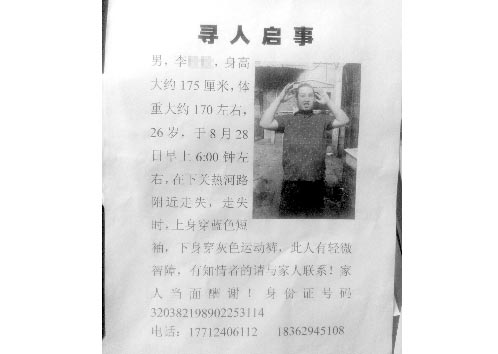 寻人启事
男，李，身高
大约175厘米，体
重大约170左右，
26岁，于8月28
日早上6:00钟左
右，在下关热河路
附近走失，走失
时，上身穿蓝色短
袖，下身穿灰色运动裤，此人有轻微
智障，有知情者的请与家人联系！家
人当面酬谢！身份证号码
320382198902253114
电话：17712406112 18362945108